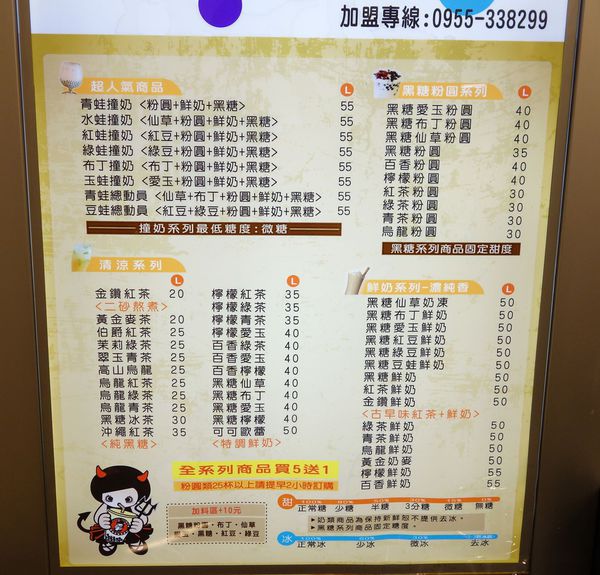 加盟專線:0955-338299
超人氣商品 L
青蛙撞奶 <粉圓+鮮奶+黑糖> 55
水蛙撞奶 <仙草+粉圓+鮮奶+黑糖> 55
紅蛙撞奶 <紅豆+粉圓+鮮奶+黑糖> 55
綠蛙撞奶 <綠豆+粉圓+鮮奶+黑糖> 55
布丁撞奶 <布丁+粉圓+鮮奶+黑糖> 55
玉蛙撞奶 <愛玉+粉圓+鮮奶+黑糖> 55
青蛙總動員 <仙草+布丁+粉圓+鮮奶+黑糖> 55
豆蛙總動員 <紅豆+綠豆+粉圓+鮮奶+黑糖> 55
撞奶系列最低糖度:微糖
黑糖粉圓系列 L
黑糖愛玉粉圓 40
黑糖布丁粉圓 40
黑糖仙草粉圓 40
黑糖粉圓 35
百香粉圓 40
檸檬粉圓 40
紅茶粉圓 30
綠茶粉圓 30
青茶粉圓 30
烏龍粉圓 30
黑糖系列商品固定甜度
清涼系列
L
金鑽紅茶 20
<二砂熬煮>
黃金麥茶 20
伯爵紅茶 25
茉莉綠茶 25
翠玉青茶 25
高山烏龍 25
烏龍紅茶 25
烏龍綠茶 25
烏龍青茶 25
黑糖冰茶 30
沖繩紅茶 35
<純黑糖>
L
檸檬紅茶 35
檸檬綠茶 35
檸檬青茶 35
檸檬愛玉 40
百香綠茶 40
百香愛玉 40
百香檸檬 40
黑糖仙草 40
黑糖布丁 40
黑糖愛玉 40
黑糖檸檬 40
可可歐蕾 50
<特調鮮奶>
鮮奶系列-濃純香 L
黑糖仙草奶凍 50
黑糖布丁鮮奶 50
黑糖愛玉鮮奶 50
黑糖紅豆鮮奶 50
黑糖綠豆鮮奶 50
黑糖豆蛙鮮奶 50
黑糖鮮奶 50
紅茶鮮奶 50
金鑽鮮奶 50
<古早味紅茶+鮮奶>
綠茶鮮奶 50
青茶鮮奶 50
烏龍鮮奶 50
黃金奶麥 55
百香鮮奶 55
全系列商品買5送1
粉圓類25杯以上請提早2小時訂購
加料區+10元
黑糖粉圓、布丁、仙草
愛玉、黑糖、紅豆、綠豆
甜 100% 80% 50% 30% 15% 0%
正常糖 少糖 半糖 3分糖 微糖 無糖
▸奶類商品為保持新鮮恕不提供去冰。
▸黑糖系列商品固定糖度。
冰 100% 50% 30%
正常冰 少冰 微冰 去冰